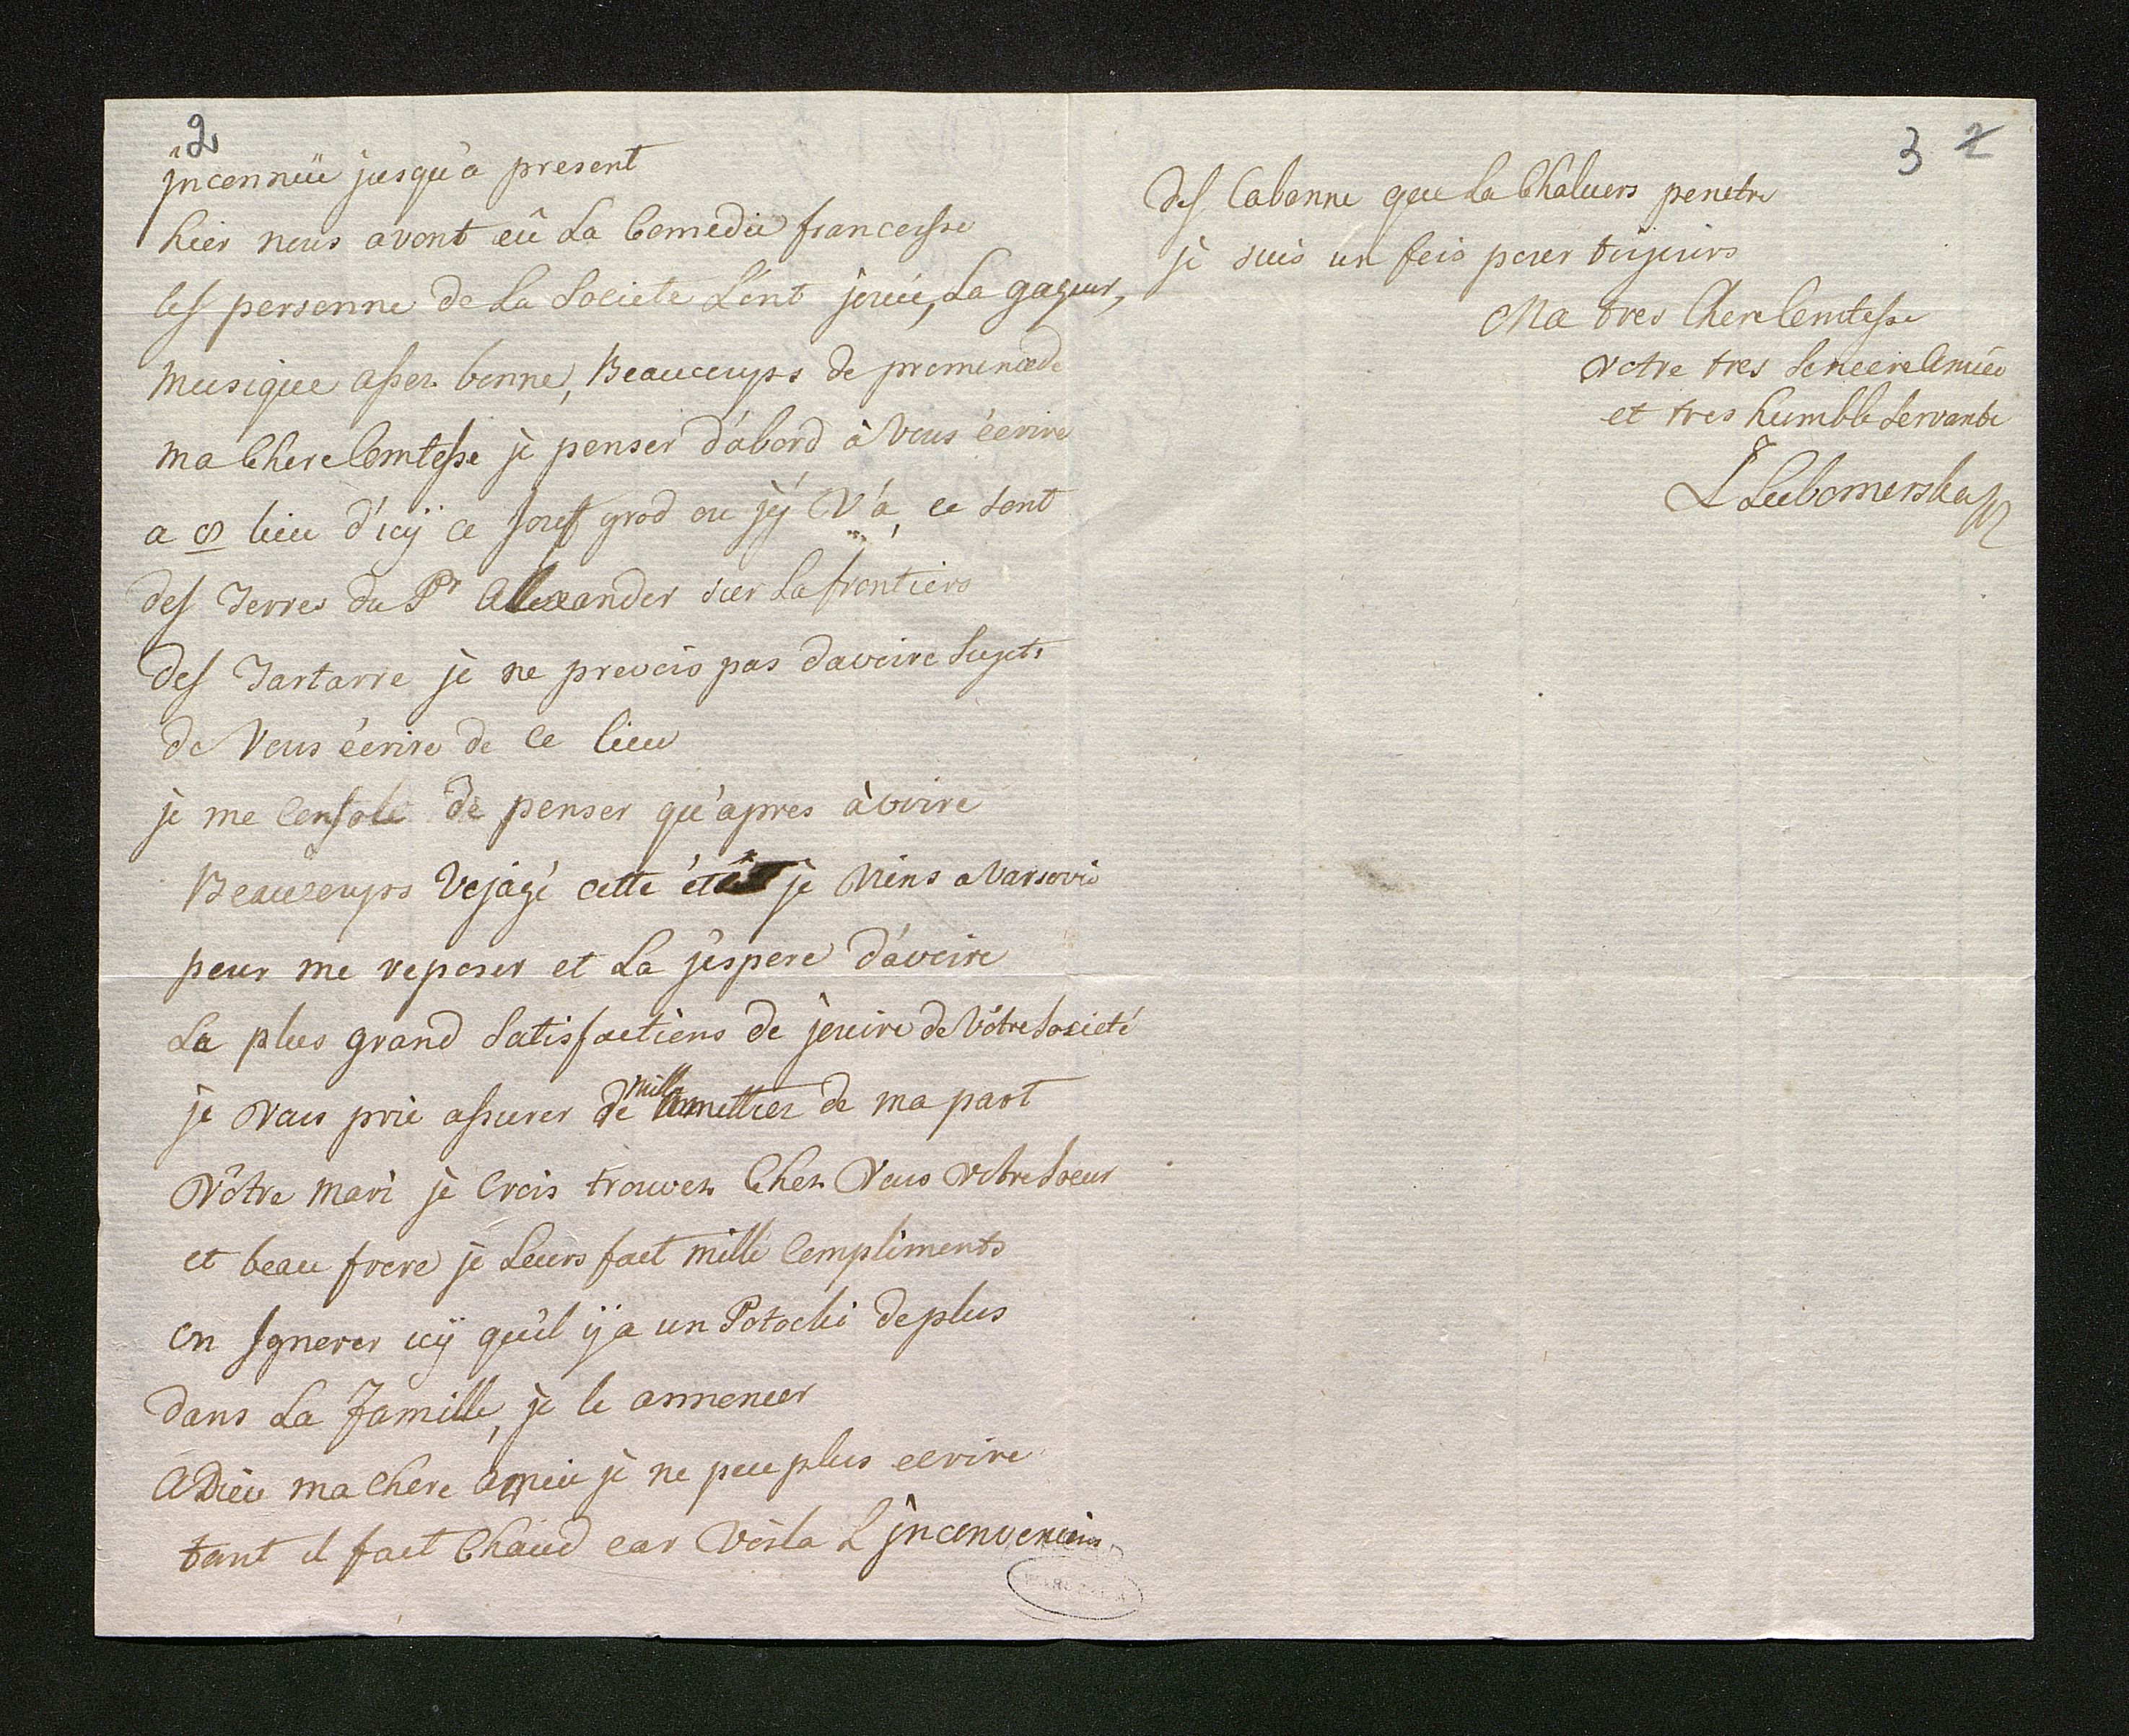 2
jnconnüe jusqu'a present
hier nous avont eû La Comedie francesse
les personne de La Societe L'ont jouée, La gagur,
Musique assez bonne, Beaucoups de promenade
ma Chere Comtesse je penser d'abord à Vous écrire
a 8 lieu d'icÿ a Jousf grod ou j'ÿ V'a, ce sont
des Terres du Pr Allexander sur La frontiers
des Tartarre je ne prevois pas davoire Sujets
de Vous écrire de ce lieu
je me Console de penser qu'apres àvoire
Beaucoups Vojagé cette été je Viens a Varsovie
pour me reposer et La j'espere d'avoire
La plus grand Satisfactions de jouire de Vôtre Societé
je Vous prie assurer de mille amettiez de ma part
Vôtre Mari je Crois trouvez Chez Vous Votre Soeur
et beau frere je Leurs fact mille Compliments
on Jgnorer icÿ qu'il ÿ a un Potocki de plus
dans La Famille, je le annoncer
ADieu ma Chere amie je ne peu plus ecrire
tant il fact Chaud car Voila L'jnconvenien
3 2
des Cabanne que La Chaluers penetre
je suis un fois pour toujours
Ma tres Chere Comtesse
Votre tres Sinceire Amiée
et tres humble Servante
L Lubomerska